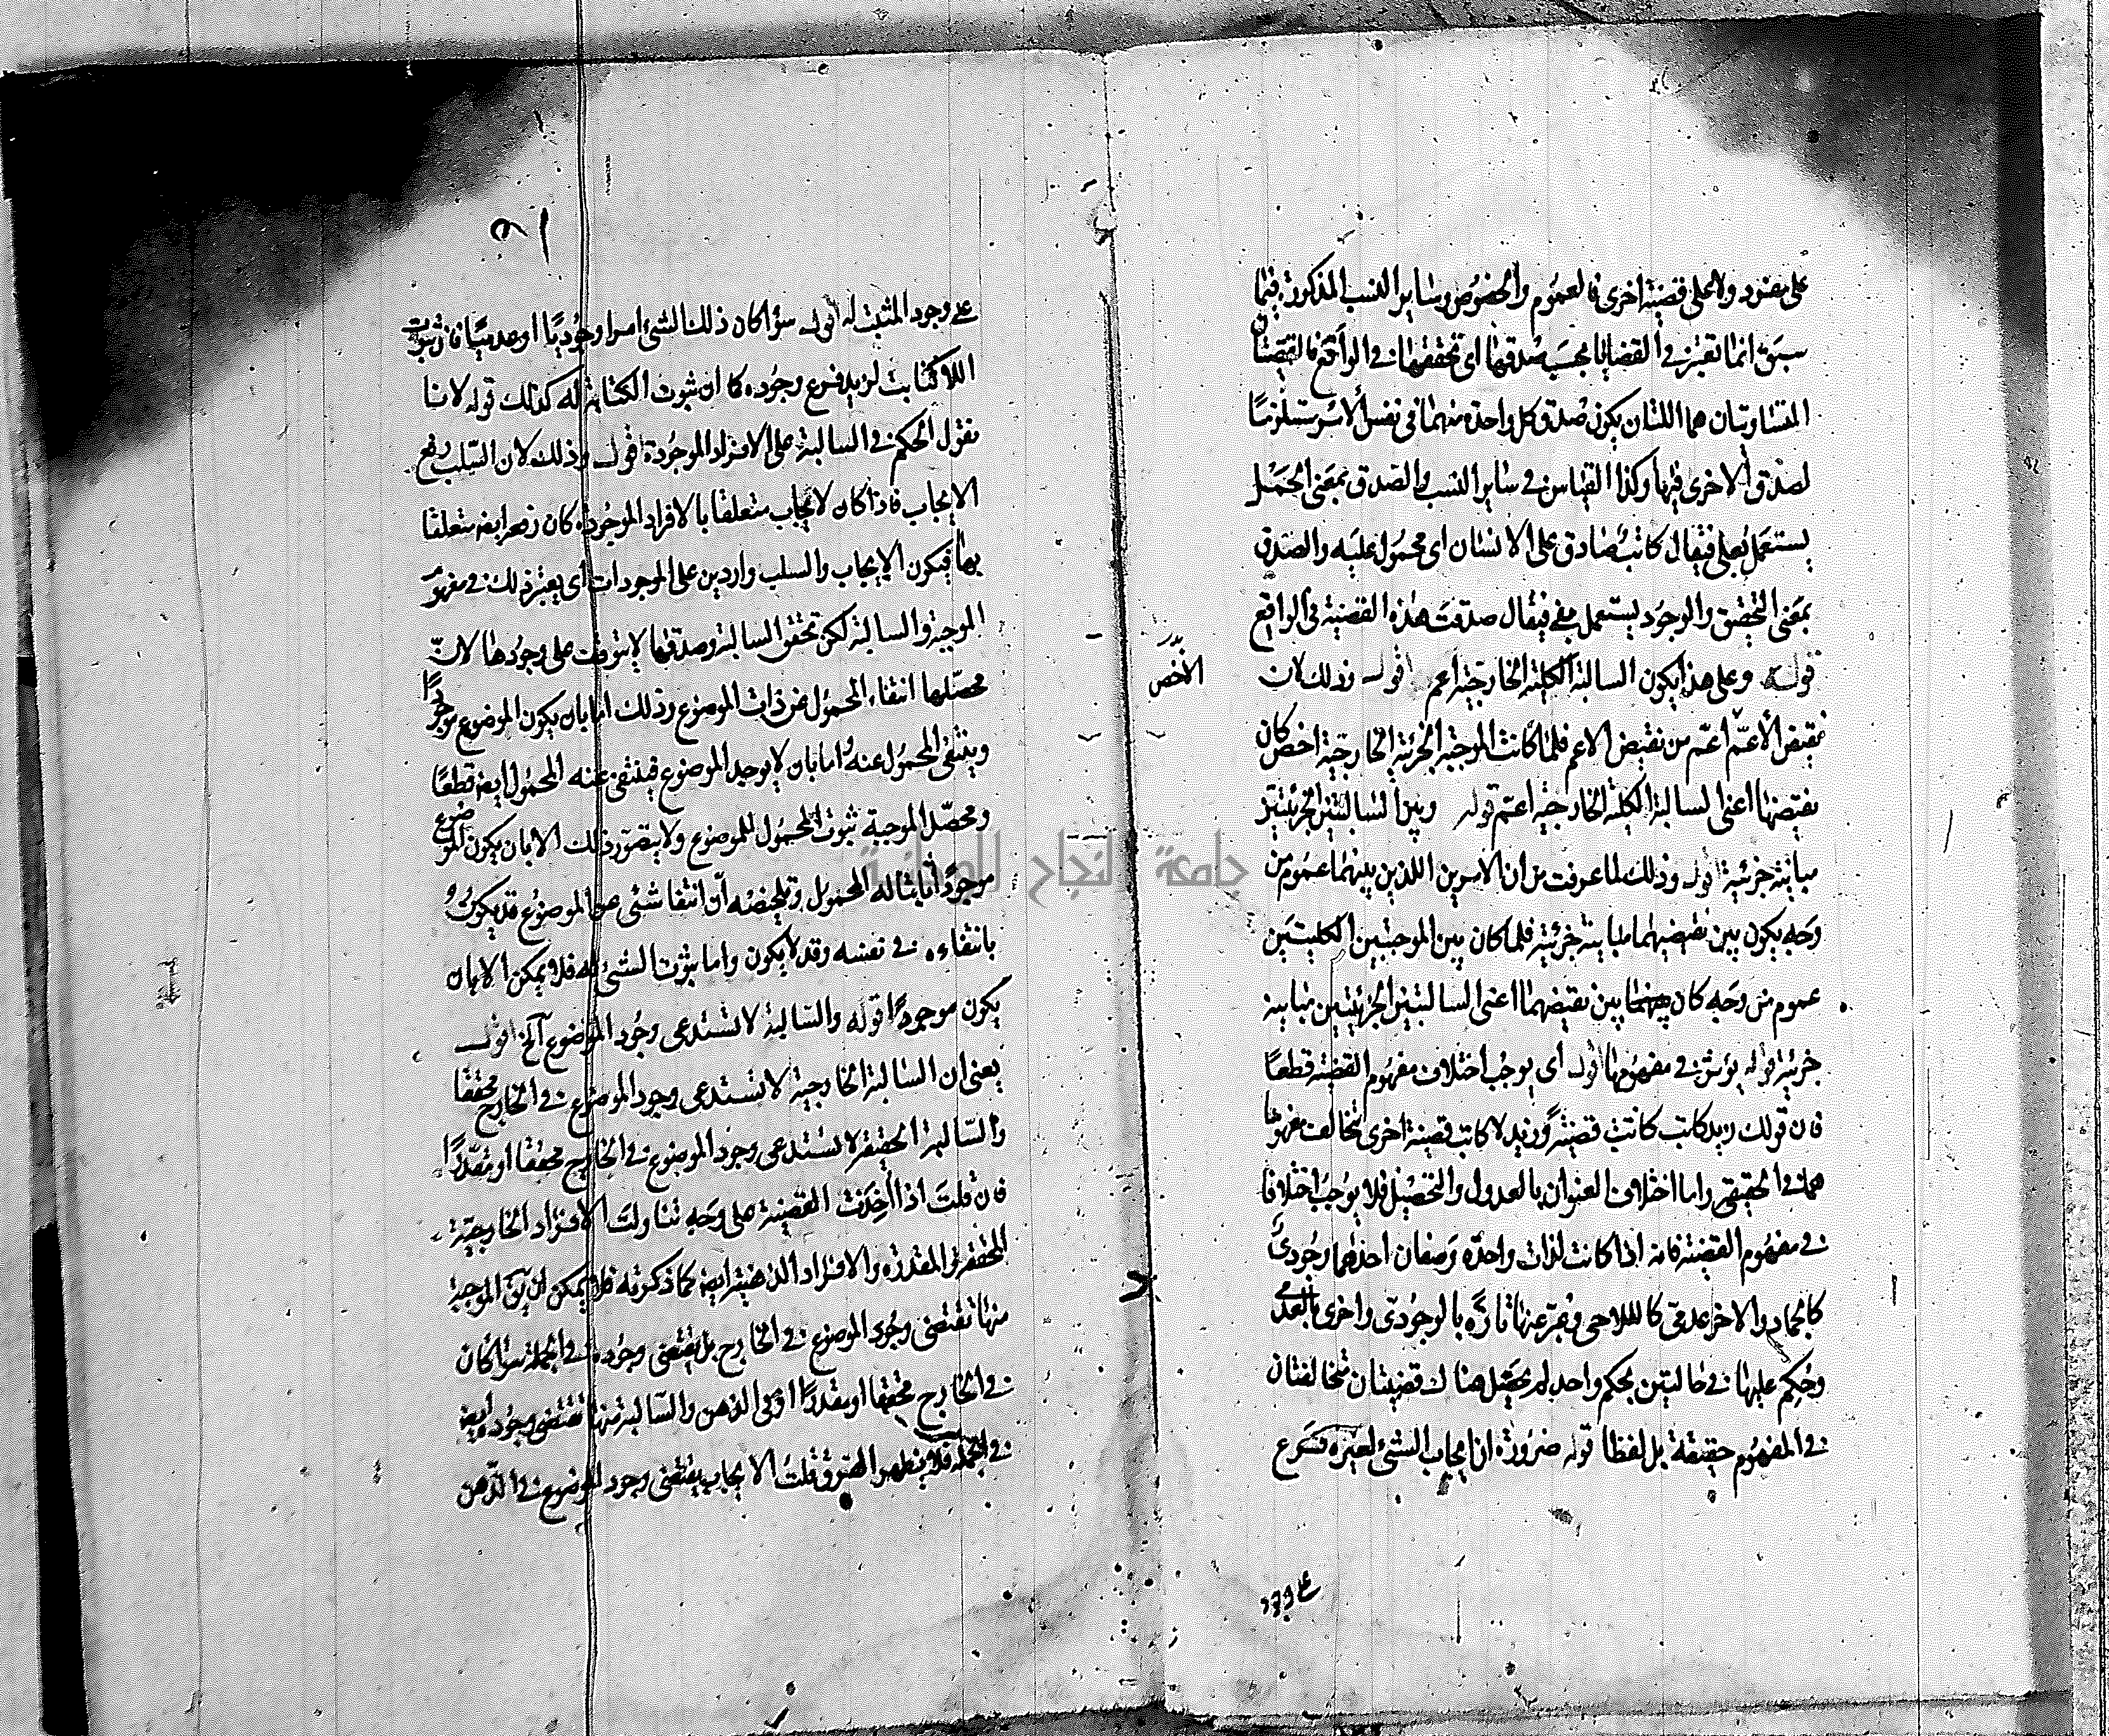 على مفرد ولا على قضية اخرى فالعموم والخصوص وساير النسب المذكورة فيما
سبق انما تعتبر في القضايا بحسب صدقها اى تحققها في الواقع فالقضيتان
المتساويتان هما اللتان يكون صدق كل واحدة منهما في نفس الامر مستلزما
لصدق الاخرى فيها وكذا القياس في ساير النسب والصدق بمعنى الحمل
يستعمل بعلى فيقال كاتب صادق على الانسان اى محمول عليه والصدق
بمعنى التحقق والوجود يستعمل بفي فيقال صدقت هذه القضية في الواقع
قوله وعلى هذا يكون السالبة الكلية الخارجية اعم اقول وذلك لان
الاخص
نقيض الأعم أعم من نقيض الاعم فلما كانت الموجبة الجزئية الخارجية اخص كان
نقيضها اعنى السالبة الكلية الخارجية اعم قوله وبين السالبتين الجزئيتين
مباينة جزئية اقول وذلك لما عرفت من ان الامرين اللذين بينهما عموم من
وجه يكون بين نقيضيهما مباينة جزئية فلما كان بين الموجبتين الكليتين
عموم من وجه كان بينهما بين نقيضهما اعنى السالبتين الجزئيتين مباينة
جزئية قوله يؤثر في مفهومها اقول اى يوجب اختلاف مفهوم القضية قطعًا
فان قولك زيد كاتب كانت قضية وزيد لا كاتب قضية اخرى تخالف مفهوما
هما في الحقيقة واما اختلاف العنوان بالعدول والتحصيل فلا يوجب اختلافا
في مفهوم القضية فانه اذا كانت لذات واحدة وصفان احدهما وجودى
كالجماد والاخر عدمى كاللاحى وعبر عنها تارة بالوجودى واخرى بالعدمى
وحكم عليها في حالتين بحكم واحد لم يحصل هناك قضيتان متخالفتان
في المفهوم حقيقة بل لفظا قوله ضرورة ان ايجاب الشئ لغيره فرع
على وجود المثبت له اقول سواء كان ذلك الشئ امرا وجوديًا او عدميًا فان ثبوت
اللاكتابة لزيد فرع وجوده كما ان ثبوت الكتابة له كذلك قوله لانا
نقول الحكم في السالبة على الافراد الموجودة اقول وذلك لان السلب رفع
الايجاب فاذا كان الايجاب متعلقا بالافراد الموجودة كان رفعه ايضا متعلقا
بها فيكون الايجاب والسلب واردين على الموجودات اى يعتبر ذلك في مفهوم
الموجبة والسالبة لكن تحقق السالبة وصدقها لا يتوقف على وجودها لان
محصلها انتفاء المحمول عن ذات الموضوع وذلك اما بان يكون الموضوع موجودًا
وينتفى المحمول عنه واما بان لا يوجد الموضوع فينتفى عنه المحمول ايضا قطعًا
ومحصل الموجبة ثبوت المحمول للموضوع ولا يتصور ذلك الا بان يكون الموضوع
موجودًا ثابتا له المحمول وتلخيصه أن انتفا شئ عن الموضوع قد يكون
بانتفاءه في نفسه وقد لا يكون واما ثبوت الشئ له فلا يمكن الا بان
يكون موجودًا قوله والسالبة لا تستدعى وجود الموضوع آلخ اقول
يعنى ان السالبة الخارجية لا تستدعى وجود الموضوع في الخارج محققا
والسالبة الحقيقة لا تستدعى وجود الموضوع في الخارج محققا او مقدرًا
فان قلت اذا أخذت القضية على وجه تناولت الافراد الخارجية
المحققة والمقدرة والافراد الذهنية ايضا كما ذكرته فلا يمكن ان يق الموجبة
منها تقتضى وجود الموضوع في الخارج بل يقتضى وجوده في الجملة سواء كان
في الخارج محققا او مقدرًا او في الذهن والسالبة منها تقتضى وجوده ايضا
في الجملة فلا يظهر الفرق قلت الايجاب يقتضى وجود الموضوع في الذهن
جامعة النجاح الوطنية